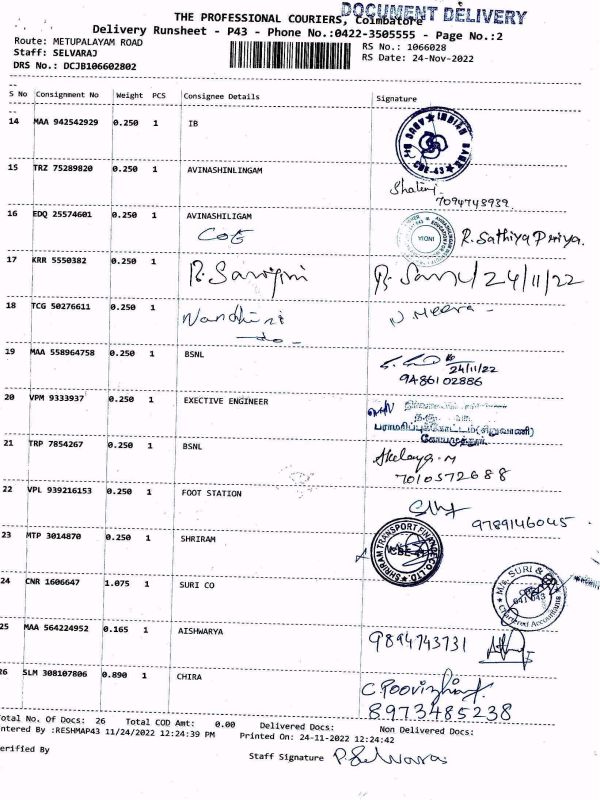 DOCUMENT DELIVERY
THE PROFESSIONAL COURIERS, Coimbatore
Delivery Runsheet - P43 - Phone No.:0422-3505555 - Page No.:2
Route: METUPALAYAM ROAD
RS No.: 1066028
Staff: SELVARAJ
RS Date: 24-Nov-2022
DRS No.: DCJB106602802
S No Consignment No Weight PCS Consignee Details Signature
14 MAA 942542929 0.250 1 IB
INDIAN BANK
CBE-43
15 TRZ 75289820 0.250 1 AVINASHINLINGAM
7094743939.
16 EDQ 25574601 0.250 1 AVINASHILIGAM
COE R. Sathiya Priya.
17 KRR 5550382 0.250 1 24/11/22
18 TCG 50276611 0.250 1 Nandhini N. Meera -
- do -
19 MAA 558964758 0.250 1 BSNL
24/11/22
9486102886
20 VPM 9333937 0.250 1 EXECTIVE ENGINEER
பராமரிப்புக்கோட்டம்(சிறுவாணி)
கோயமுத்தூர்
21 TRP 7854267 0.250 1 BSNL
7010572688
22 VPL 939216153 0.250 1 FOOT STATION
9789146045.
23 MTP 3014870 0.250 1 SHRIRAM
SHRIRAM TRANSPORT FINANCE CO LTD.
24 CNR 1606647 1.075 1 SURI CO
M/s. SURI &
641 043
Chartered Accountants
25 MAA 564224952 0.165 1 AISHWARYA
9894743731
26 SLM 308107806 0.890 1 CHIRA
8973485238
Total No. Of Docs: 26 Total COD Amt: 0.00 Delivered Docs: Non Delivered Docs:
Entered By :RESHMAP43 11/24/2022 12:24:39 PM Printed On: 24-11-2022 12:24:42
Verified By
Staff Signature P. Selvaraj